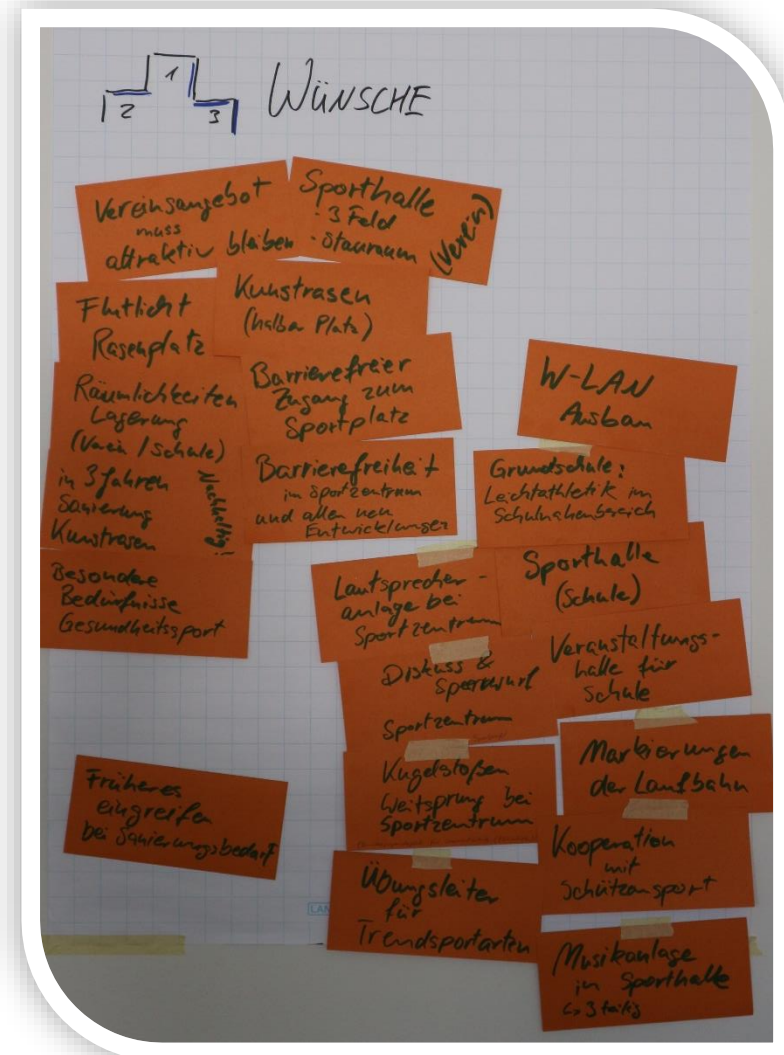 1
2
3
WÜNSCHE
Vereinsangebot
muss
attraktiv bleiben
Sporthalle
- 3 Feld
- Stauraum
(Verein)
Flutlicht
Rasenplatz
Kunstrasen
(halber Platz)
Räumlichkeiten
Lagerung
(Verein / Schule)
Barrierefreier
Zugang zum
Sportplatz
W-LAN
Ausbau
in 3 Jahren
Sanierung
Kunstrasen
Nachhaltig!
Barrierefreiheit
im Sportzentrum
und allen neuen
Entwicklungen
Grundschule:
Leichtathletik im
Schulnahenbereich
Besondere
Bedürfnisse
Gesundheitssport
Lautsprecher-
anlage bei
Sportzentrum
Sporthalle
(Schule)
Diskuss &
Speerwurf
Sportzentrum
Veranstaltungs-
halle für
Schule
Früheres
eingreifen
bei Sanierungsbedarf
Kugelstoßen
Weitsprung bei
Sportzentrum
Markierungen
der Laufbahn
Kooperation
mit
Schützensport
Übungsleiter
für
Trendsportarten
Musikanlage
in Sporthalle
↳ 3 teilig